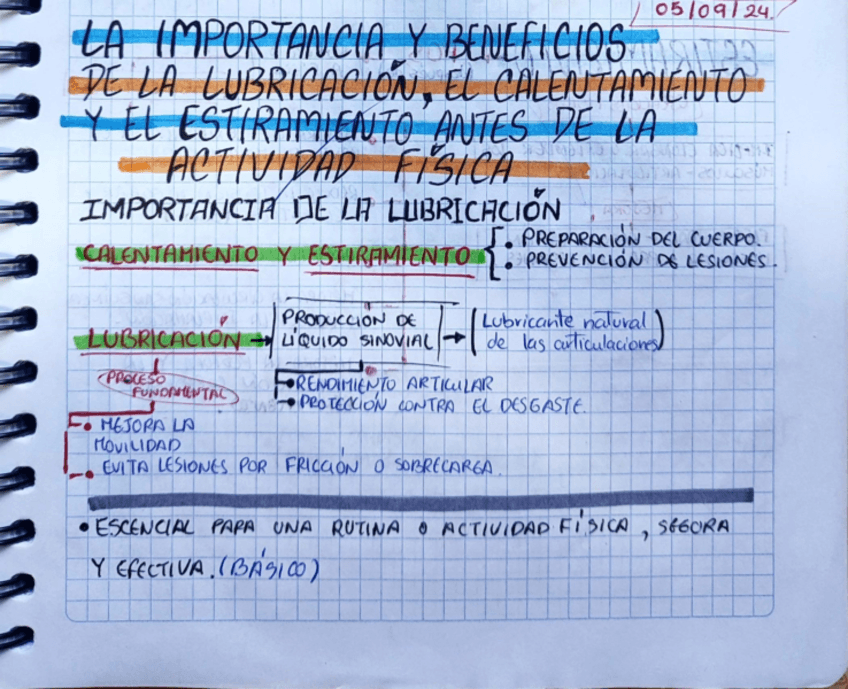 05/09/24
LA IMPORTANCIA Y BENEFICIOS
DE LA LUBRICACIÓN, EL CALENTAMIENTO
Y EL ESTIRAMIENTO ANTES DE LA
ACTIVIDAD FÍSICA
IMPORTANCIA DE LA LUBRICACIÓN
CALENTAMIENTO Y ESTIRAMIENTO
• PREPARACIÓN DEL CUERPO.
• PREVENCIÓN DE LESIONES.
LUBRICACIÓN
PRODUCCIÓN DE
LÍQUIDO SINOVIAL
(Lubricante natural
de las articulaciones)
PROCESO
FUNDAMENTAL
• RENDIMIENTO ARTICULAR
• PROTECCIÓN CONTRA EL DESGASTE.
• MEJORA LA
MOVILIDAD
• EVITA LESIONES POR FRICCIÓN O SOBRECARGA.
• ESCENCIAL PAPA UNA RUTINA O ACTIVIDAD FÍSICA, SEGURA
Y EFECTIVA. (BÁSICO)